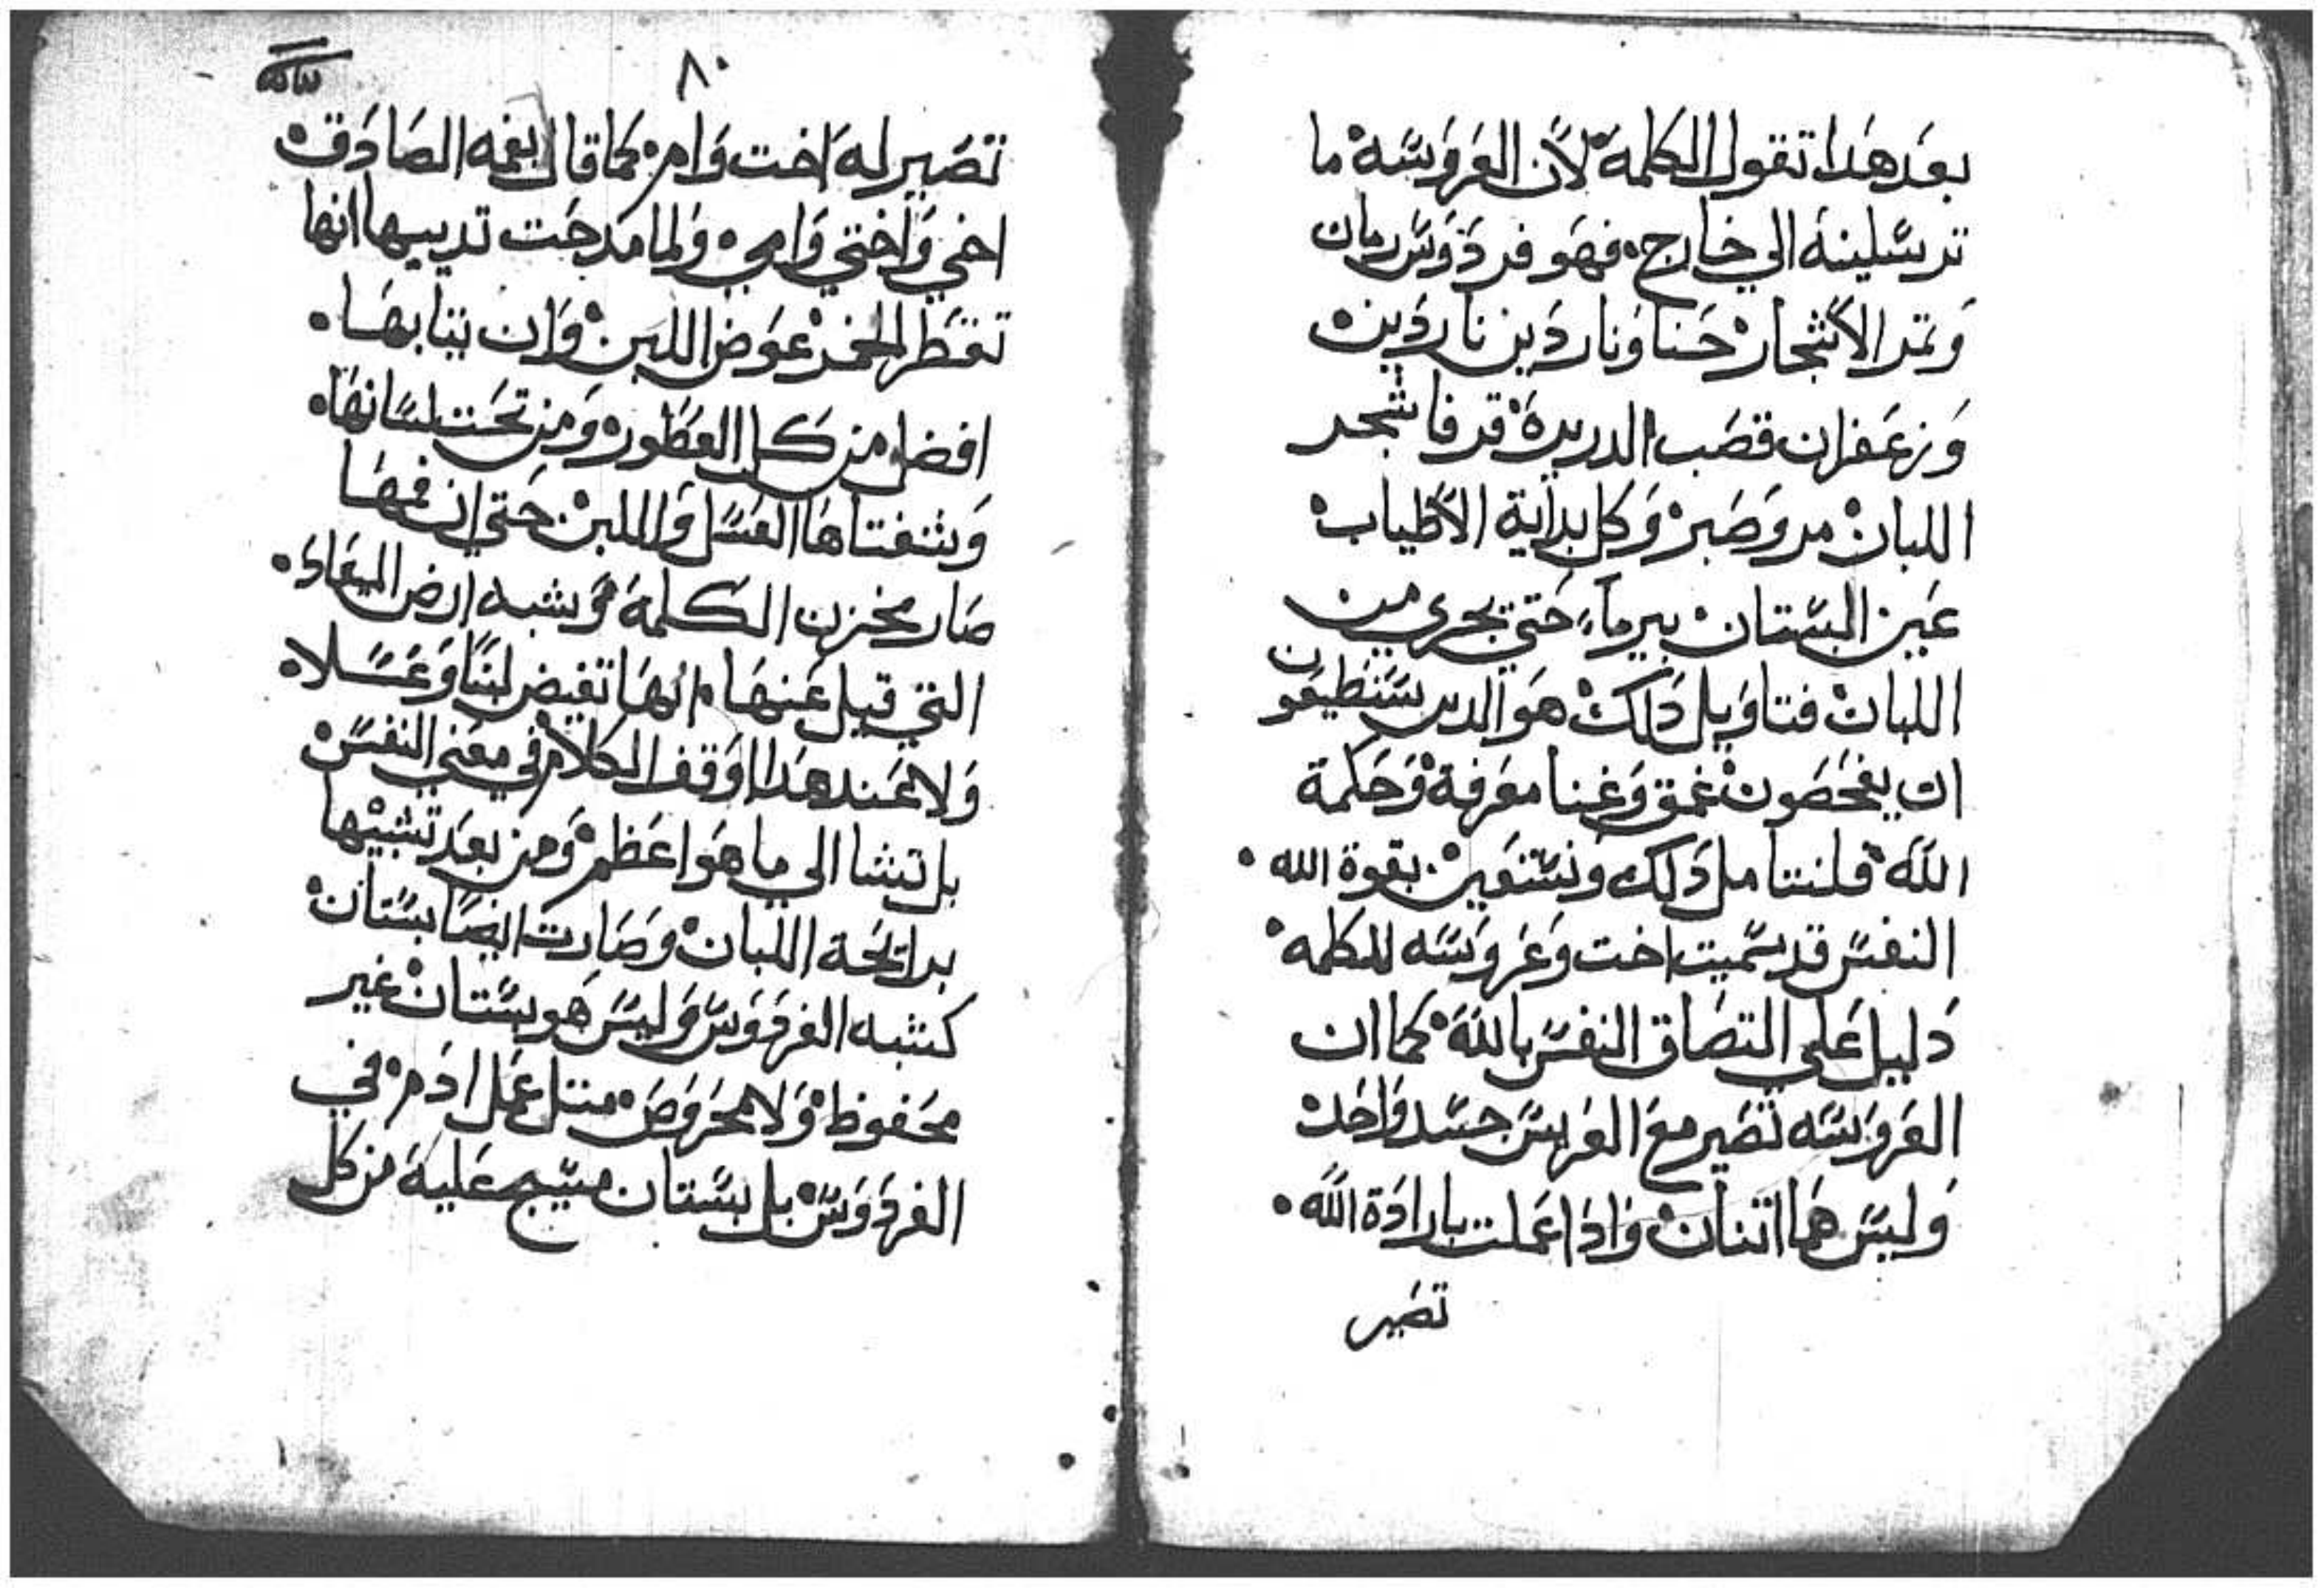 بعد هدا تقول الكلمة لأن العروسة ما
ترسلينة الي خارج فهو فردوس رمان
وتمر الأشجار حنا وناردين ناردين
وزعفران قصب الدريرة قرفا شجر
اللبان مر وصبر وكل بداية الأطياب
عين البستان بير ماء حتي تجري من
اللبان فتاويل دالك هو الدين يستطيعون
ان يفحصون غمق وغنا معرفة وحكمة
الله فلنتامل دلك ونستعين بقوة الله
النفس قد سميت اخت وعروسه للكلمه
دليل علي التصاق النفس بالله كما ان
العروسه تصير مع العريس جسد واحد
وليس هما اتنان وادا عملت بارادة الله
تصير
٨٠
تصير له اخت وام كما قال بفمه الصادق
اخي واختي وامي ولما مدحت تدييها انها
تقطر الخمر عوض اللبن وان تيابها
افضل من كل العطور ومن تحت لسانها
وشفتاها العسل واللبن حتي ان فمها
صار مخزن الكلمة وشبه ارض الميعاد
التي قيل عنها انها تفيض لبنا وعسلا
ولا عند هدا اوقف الكلام في معني النفس
بل تنشا الي ما هو اعظم ومن بعد تشبيها
براتحة اللبان وصارت ايضا بستان
كشبه الفردوس وليس هو بستان غير
محفوظ ولا محروص متل عمل ادم في
الفردوس بل بستان مسيج علية من كل